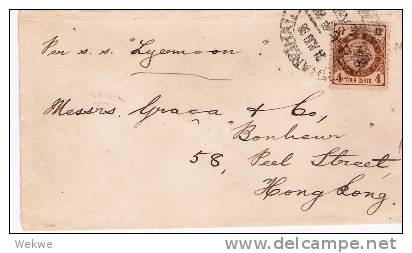 Per s.s. "Lyeemoon".
Messrs. Graça & Co,
"Bonheur"
58, Peel Street,
Hongkong.
4 4
Wekwe
www.delcampe.net